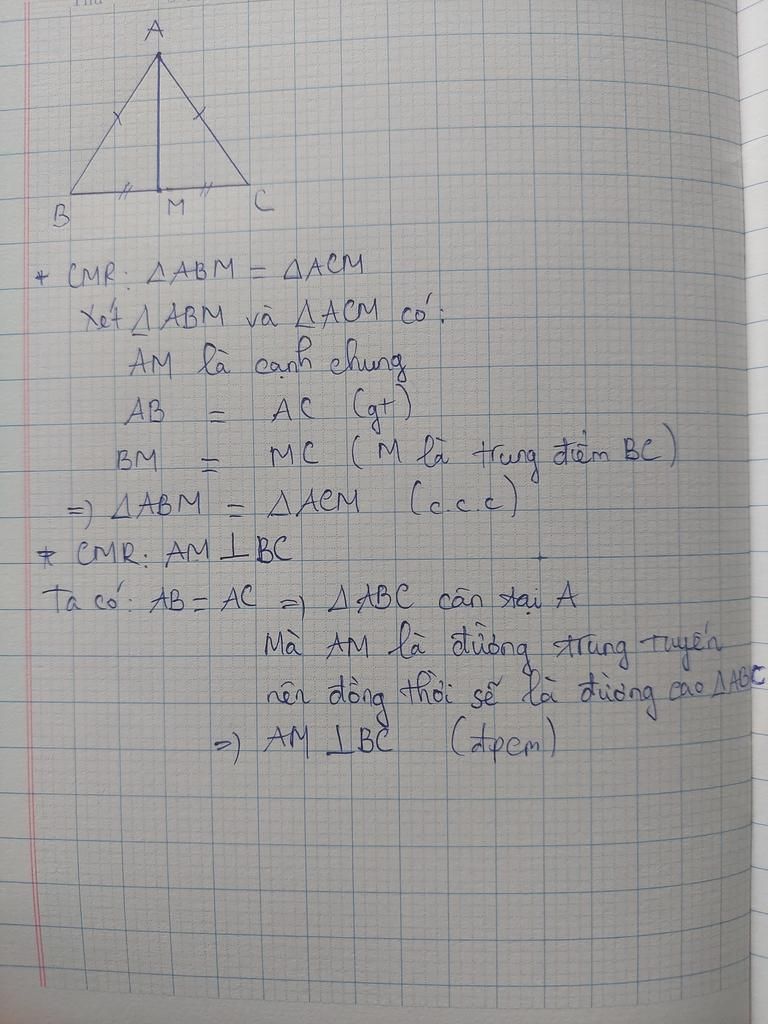 A
B
M
C
* CMR: ΔABM = ΔACM
Xét Δ ABM và ΔACM có:
AM là cạnh chung
AB = AC (gt)
BM = MC (M là trung điểm BC)
=) ΔABM = ΔACM (c.c.c)
* CMR: AM ⊥ BC
Ta có: AB = AC =) ΔABC cân tại A
Mà AM là đường trung tuyến
nên đồng thời sẽ là đường cao ΔABC
=) AM ⊥ BC (đpcm)